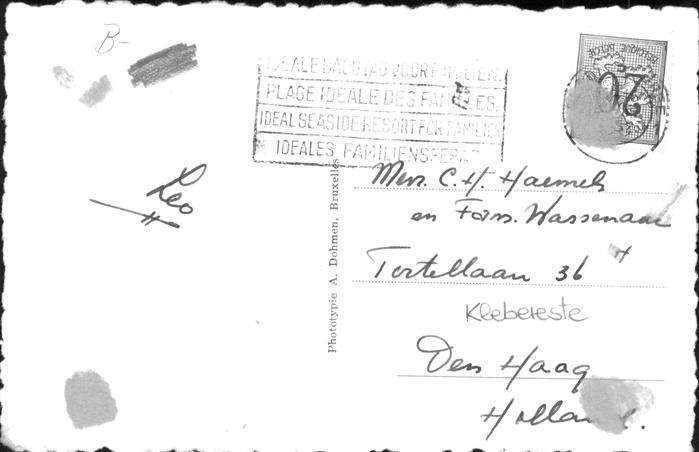 B-
IDEALE BADSTAD VOOR FAMILIEN.
PLAGE IDEALE DES FAMILLES.
IDEAL SEASIDE RESORT FOR FAMILIES
IDEALES FAMILIENSEEBAD
20
Leo
Phototypie A. Dohmen, Bruxelles
Mevr. C. H. Haemels
en Fam. Wassenaar
Tortellaan 36
Klebereste
Den Haag
Holland.